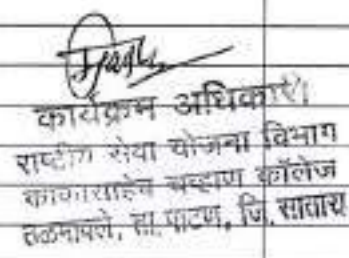 कार्यक्रम अधिकारी
राष्ट्रीय सेवा योजना विभाग
काकासाहेब चव्हाण कॉलेज
तळमावले, ता.पाटण, जि. सातारा